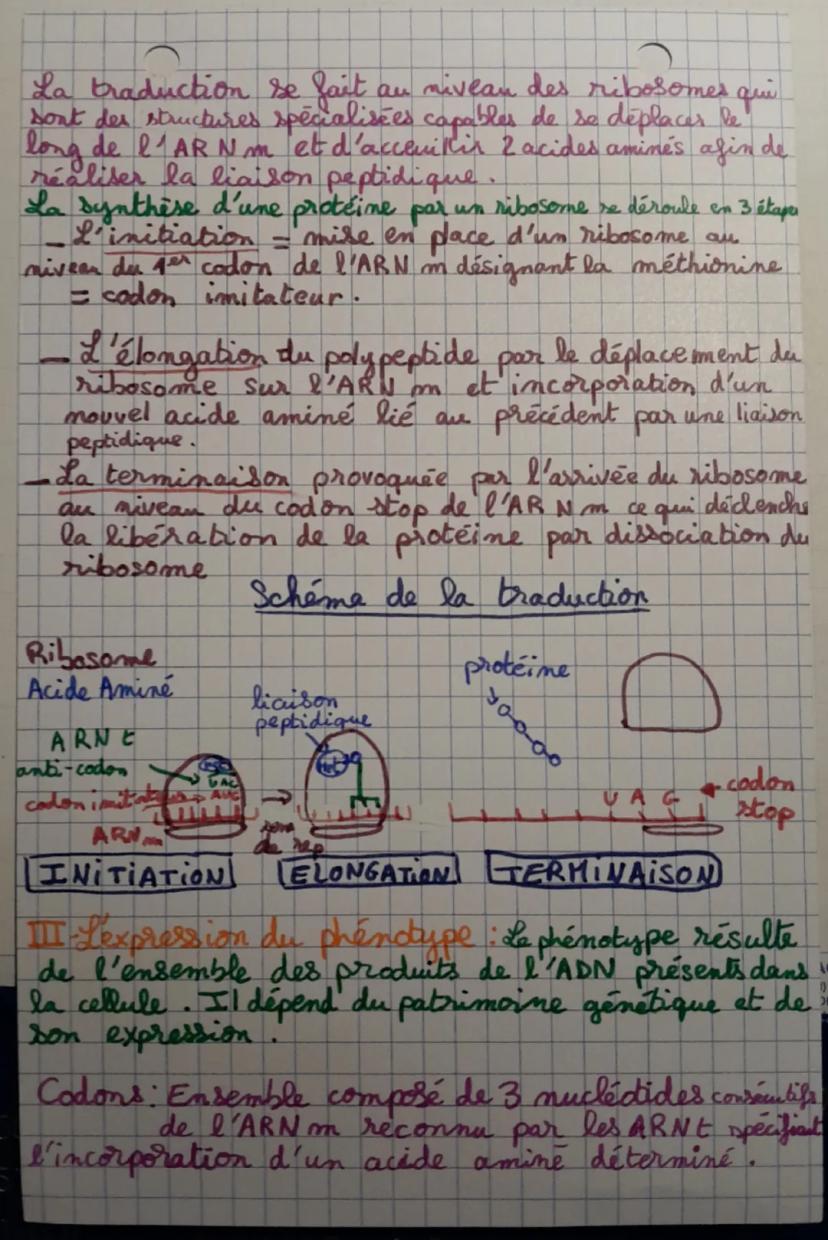 La traduction se fait au niveau des ribosomes qui
sont des structures spécialisées capables de se déplacer le
long de l'ARNm et d'acceuillir 2 acides aminés afin de
réaliser la liaison peptidique.
La synthèse d'une protéine par un ribosome se déroule en 3 étapes
- L'initiation = mise en place d'un ribosome au
niveau du 1er codon de l'ARN m désignant la méthionine
= codon imitateur.
- L'élongation du polypeptide par le déplacement du
ribosome sur l'ARN m et incorporation d'un
nouvel acide aminé lié au précédent par une liaison
peptidique.
- La terminaison provoquée par l'arrivée du ribosome
au niveau du codon stop de l'ARNm ce qui déclenche
la libération de la protéine par dissociation du
ribosome
Schéma de la traduction
Ribosome
Acide Aminé
ARN t
anti-codon
codon imitateur
ARNm
UAC
AUG
liaison
peptidique
Met
protéine
U A G
codon
stop
INITIATION
ELONGATION
TERMINAISON
III-L'expression du phénotype : Le phénotype résulte
de l'ensemble des produits de l'ADN présents dans
la cellule. Il dépend du patrimoine génétique et de
son expression.
Codons : Ensemble composé de 3 nucléotides consécutifs
de l'ARN m reconnu par les ARN t spécifiant
l'incorporation d'un acide aminé déterminé.